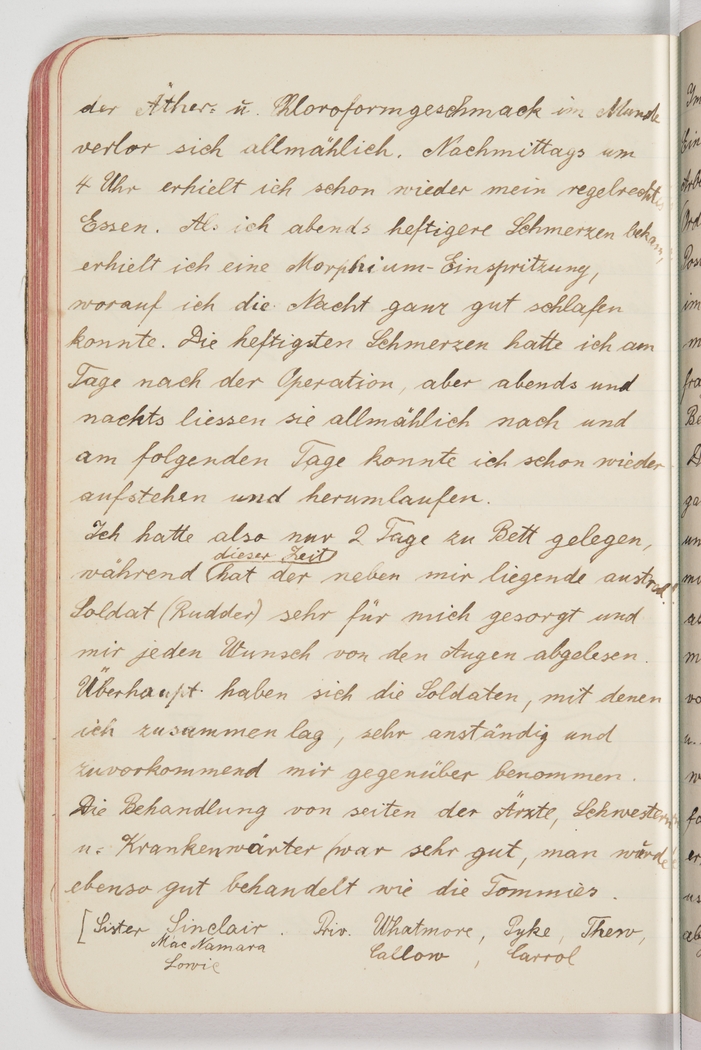 der Äther- u. Chloroformgeschmack im Munde
verlor sich allmählich. Nachmittags um
4 Uhr erhielt ich schon wieder mein regelrechtes
Essen. Als ich abends heftigere Schmerzen bekam,
erhielt ich eine Morphium-Einspritzung,
worauf ich die Nacht ganz gut schlafen
konnte. Die heftigsten Schmerzen hatte ich am
Tage nach der Operation, aber abends und
nachts liessen sie allmählich nach und
am folgenden Tage konnte ich schon wieder
aufstehen und herumlaufen.
Ich hatte also nur 2 Tage zu Bett gelegen,
dieser Zeit
während hat der neben mir liegende austral.
Soldat (Rudder) sehr für mich gesorgt und
mir jeden Wunsch von den Augen abgelesen.
Überhaupt haben sich die Soldaten, mit denen
ich zusammen lag, sehr anständig und
zuvorkommend mir gegenüber benommen.
Die Behandlung von seiten der Ärzte, Schwestern
u. Krankenwärter war sehr gut, man wurde
ebenso gut behandelt wie die Tommies.
[Sister Sinclair. Priv. Whatmore, Pyke, Thew,
Mac Namara Callow, Carrol
Lowie